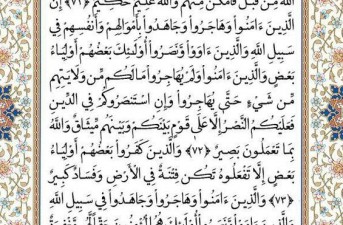 اللَّهَ مِن قَبْلُ فَأَمْكَنَ مِنْهُمْ وَاللَّهُ عَلِيمٌ حَكِيمٌ ﴿٧١﴾ إِنَّ
الَّذِينَ ءَامَنُوا وَهَاجَرُوا وَجَاهَدُوا بِأَمْوَالِهِمْ وَأَنفُسِهِمْ فِي
سَبِيلِ اللَّهِ وَالَّذِينَ ءَاوَوا وَّنَصَرُوا أُولَٰئِكَ بَعْضُهُمْ أَوْلِيَاءُ
بَعْضٍ وَالَّذِينَ ءَامَنُوا وَلَمْ يُهَاجِرُوا مَا لَكُم مِّن وَلَايَتِهِم
مِّن شَيْءٍ حَتَّىٰ يُهَاجِرُوا وَإِنِ اسْتَنصَرُوكُمْ فِي الدِّينِ
فَعَلَيْكُمُ النَّصْرُ إِلَّا عَلَىٰ قَوْمٍ بَيْنَكُمْ وَبَيْنَهُم مِّيثَاقٌ وَاللَّهُ
بِمَا تَعْمَلُونَ بَصِيرٌ ﴿٧٢﴾ وَالَّذِينَ كَفَرُوا بَعْضُهُمْ أَوْلِيَاءُ
بَعْضٍ إِلَّا تَفْعَلُوهُ تَكُن فِتْنَةٌ فِي الْأَرْضِ وَفَسَادٌ كَبِيرٌ
﴿٧٣﴾ وَالَّذِينَ ءَامَنُوا وَهَاجَرُوا وَجَاهَدُوا فِي سَبِيلِ اللَّهِ